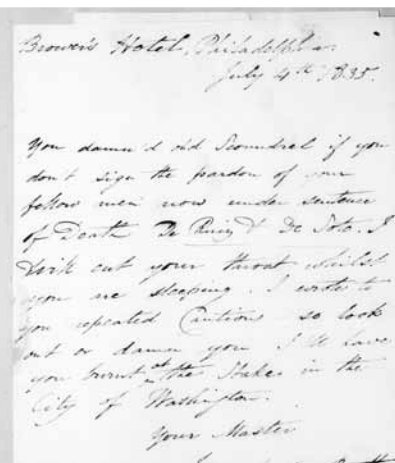 Brower's Hotel, Philadelphia
July 4th 1835.
You damn'd old Scoundrel if you
don't sign the pardon of your
fellow men now under sentence
of Death De Ruiz & De Soto. I
will cut your throat whilst
you are sleeping. I wrote to
you repeated Cautions so look
out or damn you I'll have
you burnt at the Stake in the
City of Washington.
Your Master